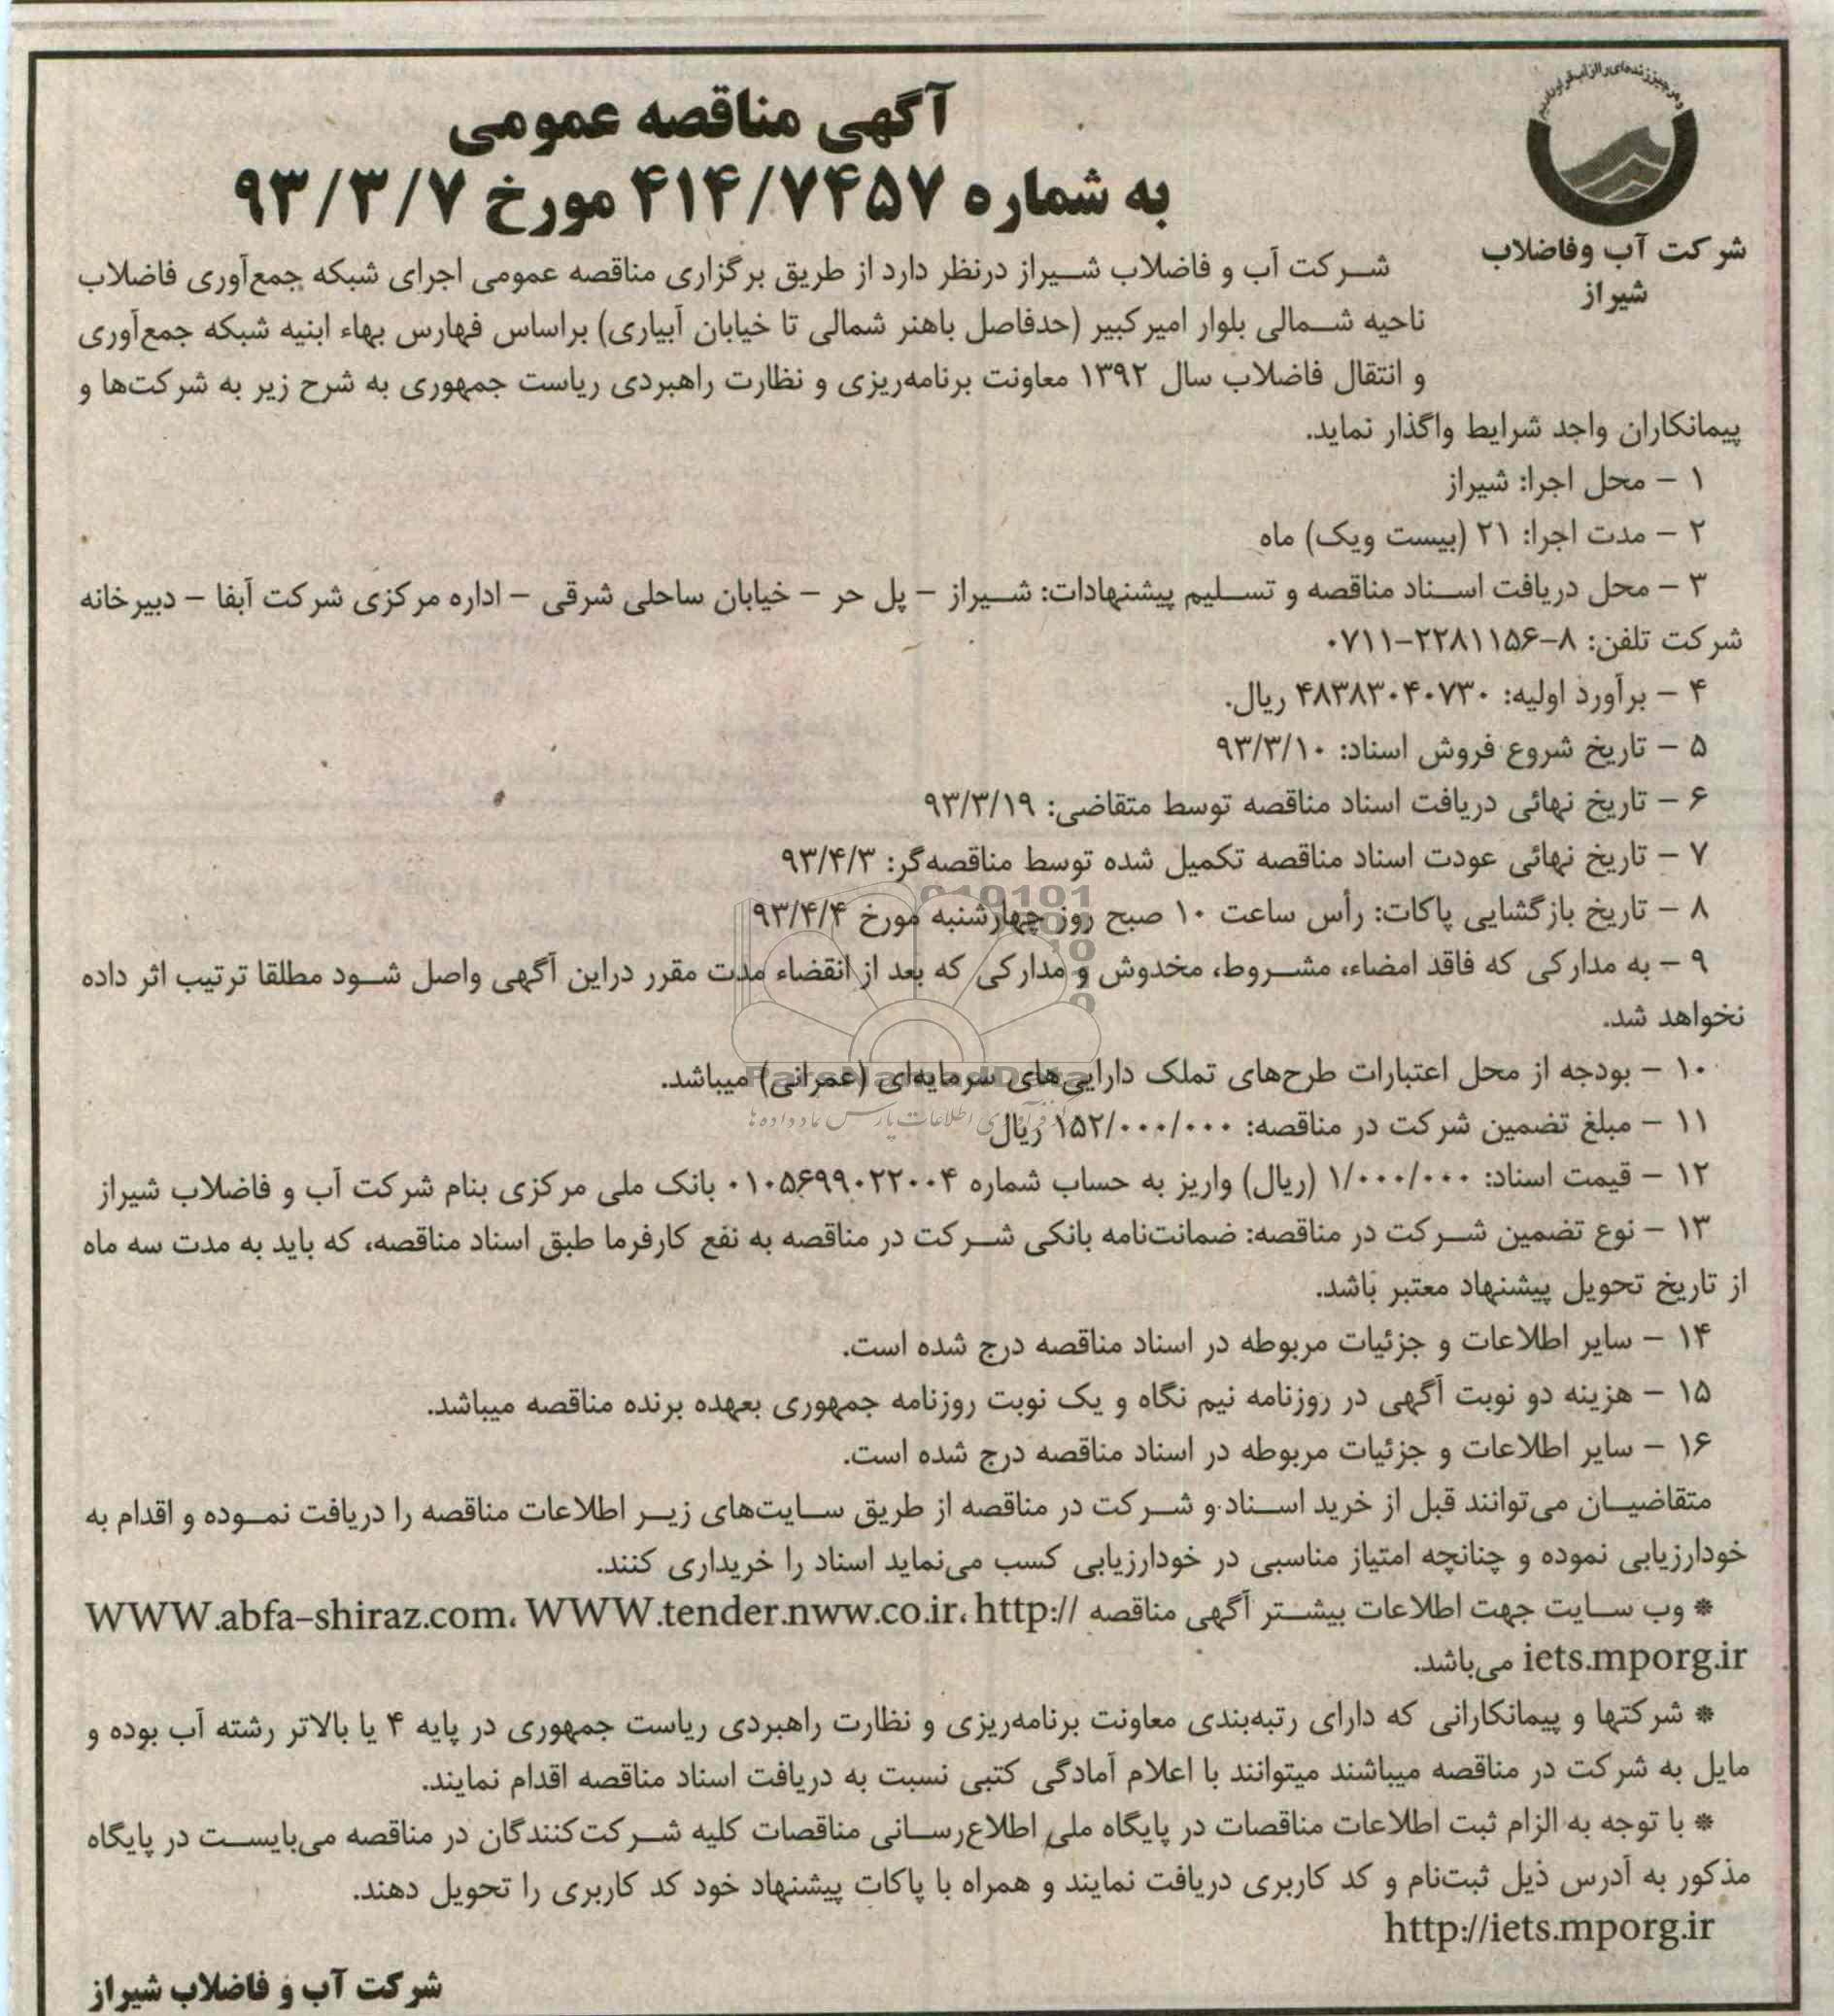 و هر چیز زنده‌ای را از آب قرار دادیم
شرکت آب وفاضلاب
شیراز
آگهی مناقصه عمومی
به شماره ۴۱۴/۷۴۵۷ مورخ ۹۳/۳/۷
شرکت آب و فاضلاب شیراز درنظر دارد از طریق برگزاری مناقصه عمومی اجرای شبکه جمع‌آوری فاضلاب
ناحیه شمالی بلوار امیرکبیر (حدفاصل باهنر شمالی تا خیابان آبیاری) براساس فهارس بهاء ابنیه شبکه جمع‌آوری
و انتقال فاضلاب سال ۱۳۹۲ معاونت برنامه‌ریزی و نظارت راهبردی ریاست جمهوری به شرح زیر به شرکت‌ها و
پیمانکاران واجد شرایط واگذار نماید.
۱ – محل اجرا: شیراز
۲ – مدت اجرا: ۲۱ (بیست ویک) ماه
۳ – محل دریافت اسناد مناقصه و تسلیم پیشنهادات: شیراز – پل حر – خیابان ساحلی شرقی – اداره مرکزی شرکت آبفا – دبیرخانه
شرکت تلفن: ۸–۲۲۸۱۱۵۶–۰۷۱۱
۴ – برآورد اولیه: ۴۸۳۸۳۰۴۰۷۳۰ ریال.
۵ – تاریخ شروع فروش اسناد: ۹۳/۳/۱۰
۶ – تاریخ نهائی دریافت اسناد مناقصه توسط متقاضی: ۹۳/۳/۱۹
۷ – تاریخ نهائی عودت اسناد مناقصه تکمیل شده توسط مناقصه‌گر: ۹۳/۴/۳
۸ – تاریخ بازگشایی پاکات: رأس ساعت ۱۰ صبح روز چهارشنبه مورخ ۹۳/۴/۴
۹ – به مدارکی که فاقد امضاء، مشروط، مخدوش و مدارکی که بعد از انقضاء مدت مقرر دراین آگهی واصل شود مطلقا ترتیب اثر داده
نخواهد شد.
۱۰ – بودجه از محل اعتبارات طرح‌های تملک دارایی‌های سرمایه‌ای (عمرانی) میباشد.
۱۱ – مبلغ تضمین شرکت در مناقصه: ۱۵۲/۰۰۰/۰۰۰ ریال
۱۲ – قیمت اسناد: ۱/۰۰۰/۰۰۰ (ریال) واریز به حساب شماره ۰۱۰۵۶۹۹۰۲۲۰۰۴ بانک ملی مرکزی بنام شرکت آب و فاضلاب شیراز
۱۳ – نوع تضمین شرکت در مناقصه: ضمانت‌نامه بانکی شرکت در مناقصه به نفع کارفرما طبق اسناد مناقصه، که باید به مدت سه ماه
از تاریخ تحویل پیشنهاد معتبر باشد.
۱۴ – سایر اطلاعات و جزئیات مربوطه در اسناد مناقصه درج شده است.
۱۵ – هزینه دو نوبت آگهی در روزنامه نیم نگاه و یک نوبت روزنامه جمهوری بعهده برنده مناقصه میباشد.
۱۶ – سایر اطلاعات و جزئیات مربوطه در اسناد مناقصه درج شده است.
متقاضیان می‌توانند قبل از خرید اسناد و شرکت در مناقصه از طریق سایت‌های زیر اطلاعات مناقصه را دریافت نموده و اقدام به
خودارزیابی نموده و چنانچه امتیاز مناسبی در خودارزیابی کسب می‌نماید اسناد را خریداری کنند.
* وب سایت جهت اطلاعات بیشتر آگهی مناقصه WWW.abfa-shiraz.com، WWW.tender.nww.co.ir، http://
iets.mporg.ir می‌باشد.
* شرکتها و پیمانکارانی که دارای رتبه‌بندی معاونت برنامه‌ریزی و نظارت راهبردی ریاست جمهوری در پایه ۴ یا بالاتر رشته آب بوده و
مایل به شرکت در مناقصه میباشند میتوانند با اعلام آمادگی کتبی نسبت به دریافت اسناد مناقصه اقدام نمایند.
* با توجه به الزام ثبت اطلاعات مناقصات در پایگاه ملی اطلاع‌رسانی مناقصات کلیه شرکت‌کنندگان در مناقصه می‌بایست در پایگاه
مذکور به آدرس ذیل ثبت‌نام و کد کاربری دریافت نمایند و همراه با پاکات پیشنهاد خود کد کاربری را تحویل دهند.
http://iets.mporg.ir
شرکت آب و فاضلاب شیراز